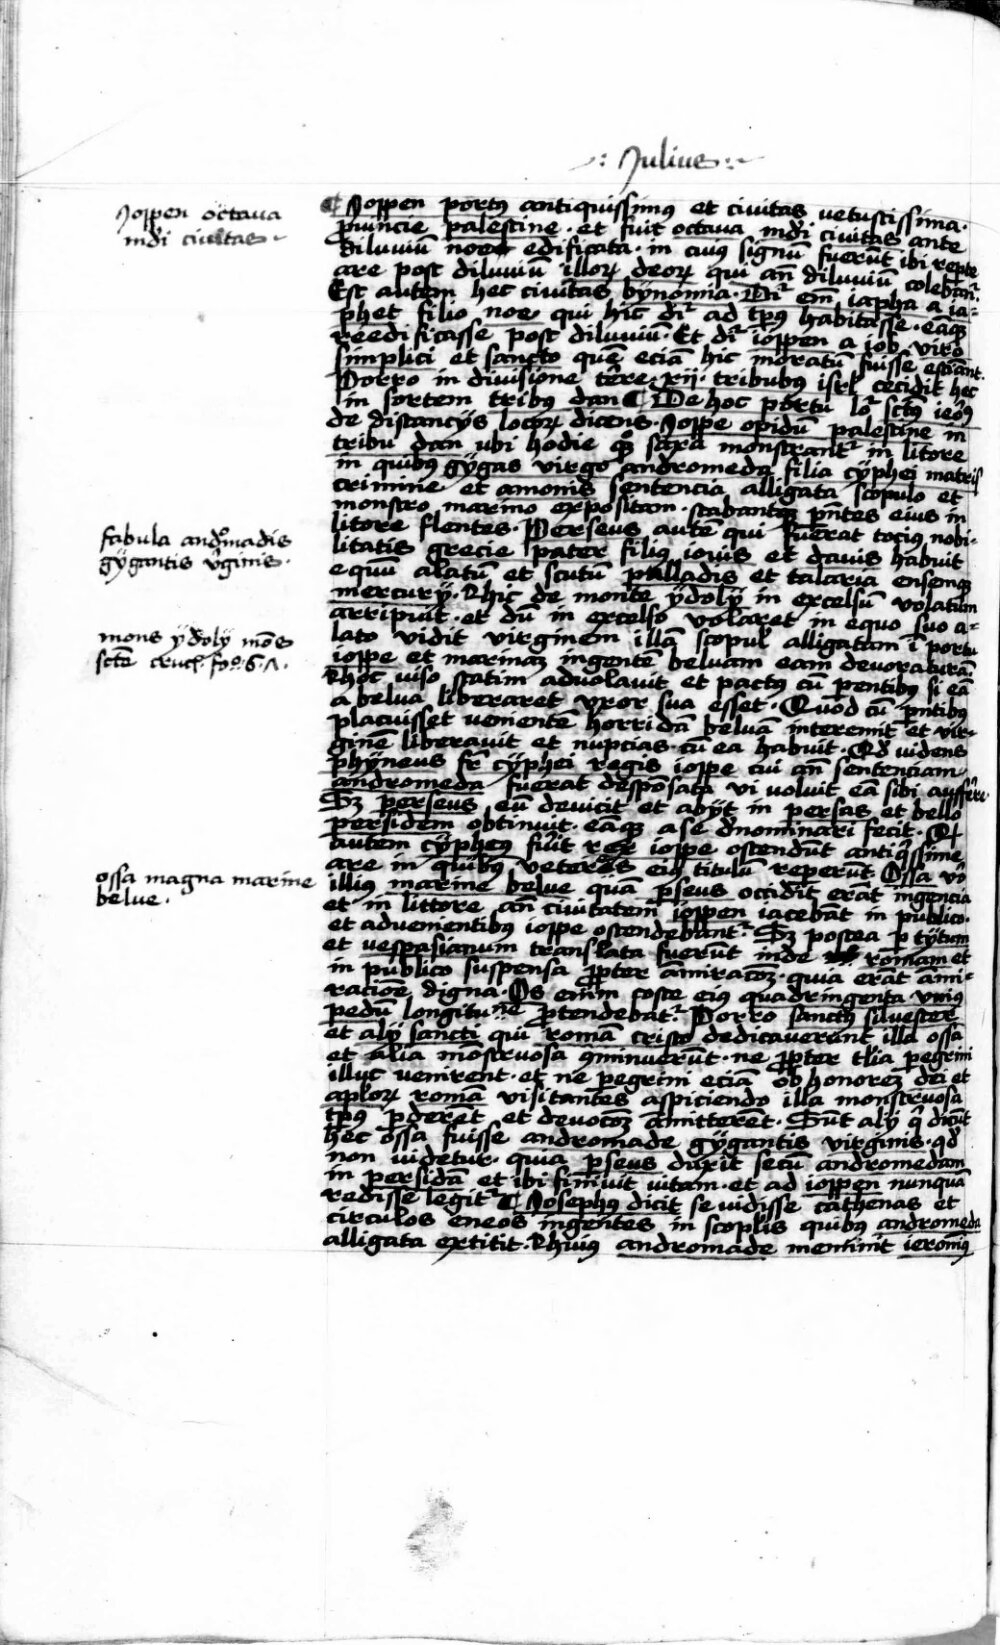 ·: Julius :·
Joppen octaua
mdi ciuitas
¶ Joppen portꝰ antiquissimꝰ et ciuitas vetustissima·
ꝓuincie palestine · et fuit octaua mdi ciuitas ante
diluuiū noe edificata · in cuiꝰ signū fuerūt ibi reꝑte
are post diluuiū illoꝝ deoꝝ qui añ diluuiū colebantᷣ.
Est autem hec ciuitas bynomia · Drᷣ em̄ iapha a ia-
phet filio noe qui hic drᷣ ad tꝑꝰ habitasse · eāqꝫ
reedificasse post diluuiū · Et drᷣ ioppen a iob viro
simplici et sancto quē eciam hic moratū fuisse estīant.
Porro in diuisione t̄re · xij · tribubꝰ isrl̄ cecidit hec
in sortem tribꝰ dan ¶ De hoc portu loᷣ sctꝰ ieoꝰ
de distancijs locoꝝ dicens · Joppe opidū palestine in
tribu dan ubi hodie qͦꝫ saxa monstrantᷣ in litore
in quibꝰ gÿgas virgo andromeda filia cÿphei matris
crimine et amonis sentencia alligata scopulo et
monstro marino expositam · stabantqꝫ pñtes eius in
fabula andromadis
gÿgantis v̓ginis·
litore flentes · Perseus autē qui fuerat tocius nobi-
litatis grecie pater filiꝰ iouis et dauis habuit
equū alatū et scutū palladis et talaria ensemqꝫ
mercurÿ · Rhic de monte ÿdolÿ in excelsū volatum
arripuit · et dū in excelso volaret in equo suo a-
mons ÿdolÿ mōs
scte cruc̄ · fo · 6 · A ·
lato vidit virginem illā scopul̓ alligatam ī portu
ioppe et marinaꝫ ingentē beluam eam deuoraturā
Rhoc viso statim aduolauit et pactꝰ cū ꝑentibꝰ si eā
a belua liberaret vxor sua esset · Quod cū ꝑntibꝰ
placuisset uenientē horridā beluā interemit et vir-
ginē liberauit et nupcias cū ea habuit · Qd̓ uidens
phÿneus fr̄ cÿphei regis ioppe cui añ sentenciam
andromeda fuerat desponsata vi voluit eā sibi aufferre
Sꝫ perseus eū deuicit et abÿt in persas et bello
persidem obtinuit · eāqꝫ a se d̓nominari fecit · Qd̓
autem cÿpheus fuit rex ioppe ostendūt antiq̄ssime
ossa magna marine
belue ·
are in quibꝰ veteres eiꝰ titulū reperūt · Ossa vᵒ
illius marine belue quā ꝑseus occidit erāt ingencia
et in littore añ ciuitatem ioppen iacebāt in publico·
et aduenientibus ioppe ostendebantᷣ · Sꝫ postea ꝑ tÿtum
et vespasianum translata fuerūt inde romam et
in publico suspensa ꝓpter āmiracōꝫ · quia erāt āmi-
racione digna · Os enim coste eiꝰ quadringenta vniꝰ
pedū longitudīe ꝓtendebatᷣ · Porro sanctꝰ siluester
et alÿ sancti qui romā cristo dedicauerent illa ossa
et alia mōstruosa ꝯminuerūt · ne ꝓpter tl̄ia ꝑegrini
illuc uenirent · et ne ꝑegrini eciā ob honoreꝫ dei et
aplōꝝ romā visitantes aspiciendo illa monstruosa
tꝑꝰ ꝑderēt et deuocōꝫ āmitterēt · Sūt alÿ q̄ dicūt
hec ossa fuisse andromade gÿgantis virginis · qd̓
non uidetur · quia ꝑseus duxit secū andromedam
in persidā et ibi finiuit uitam · et ad ioppen nunquā
redisse legitᷣ ¶ Josephus dicit se uidisse cathenas et
circulos eneos ingentes in scopulis quibus andromeda
alligata extitit · Rhuiꝰ andromade meminit ieronimꝰ